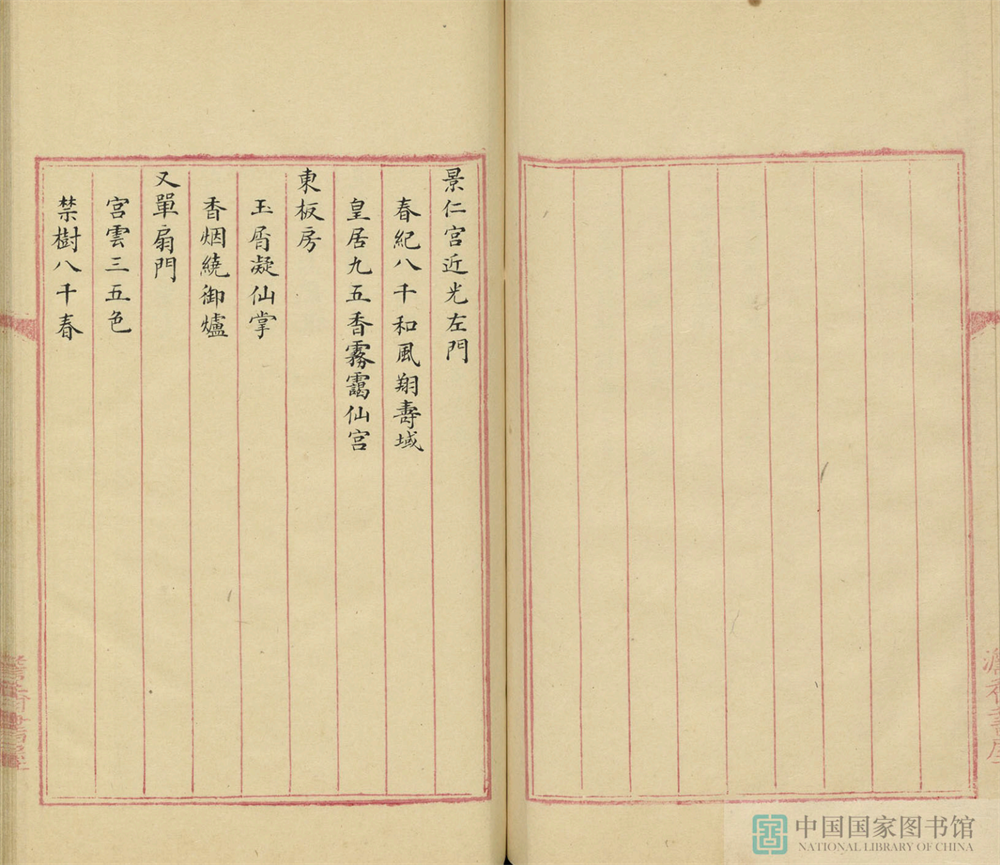 景仁宮近光左門
春紀八千和風翔壽域
皇居九五香霧靄仙宮
東板房
玉屑凝仙掌
香烟繞御爐
又單扇門
宮雲三五色
禁樹八千春
中国国家图书馆
NATIONAL LIBRARY OF CHINA